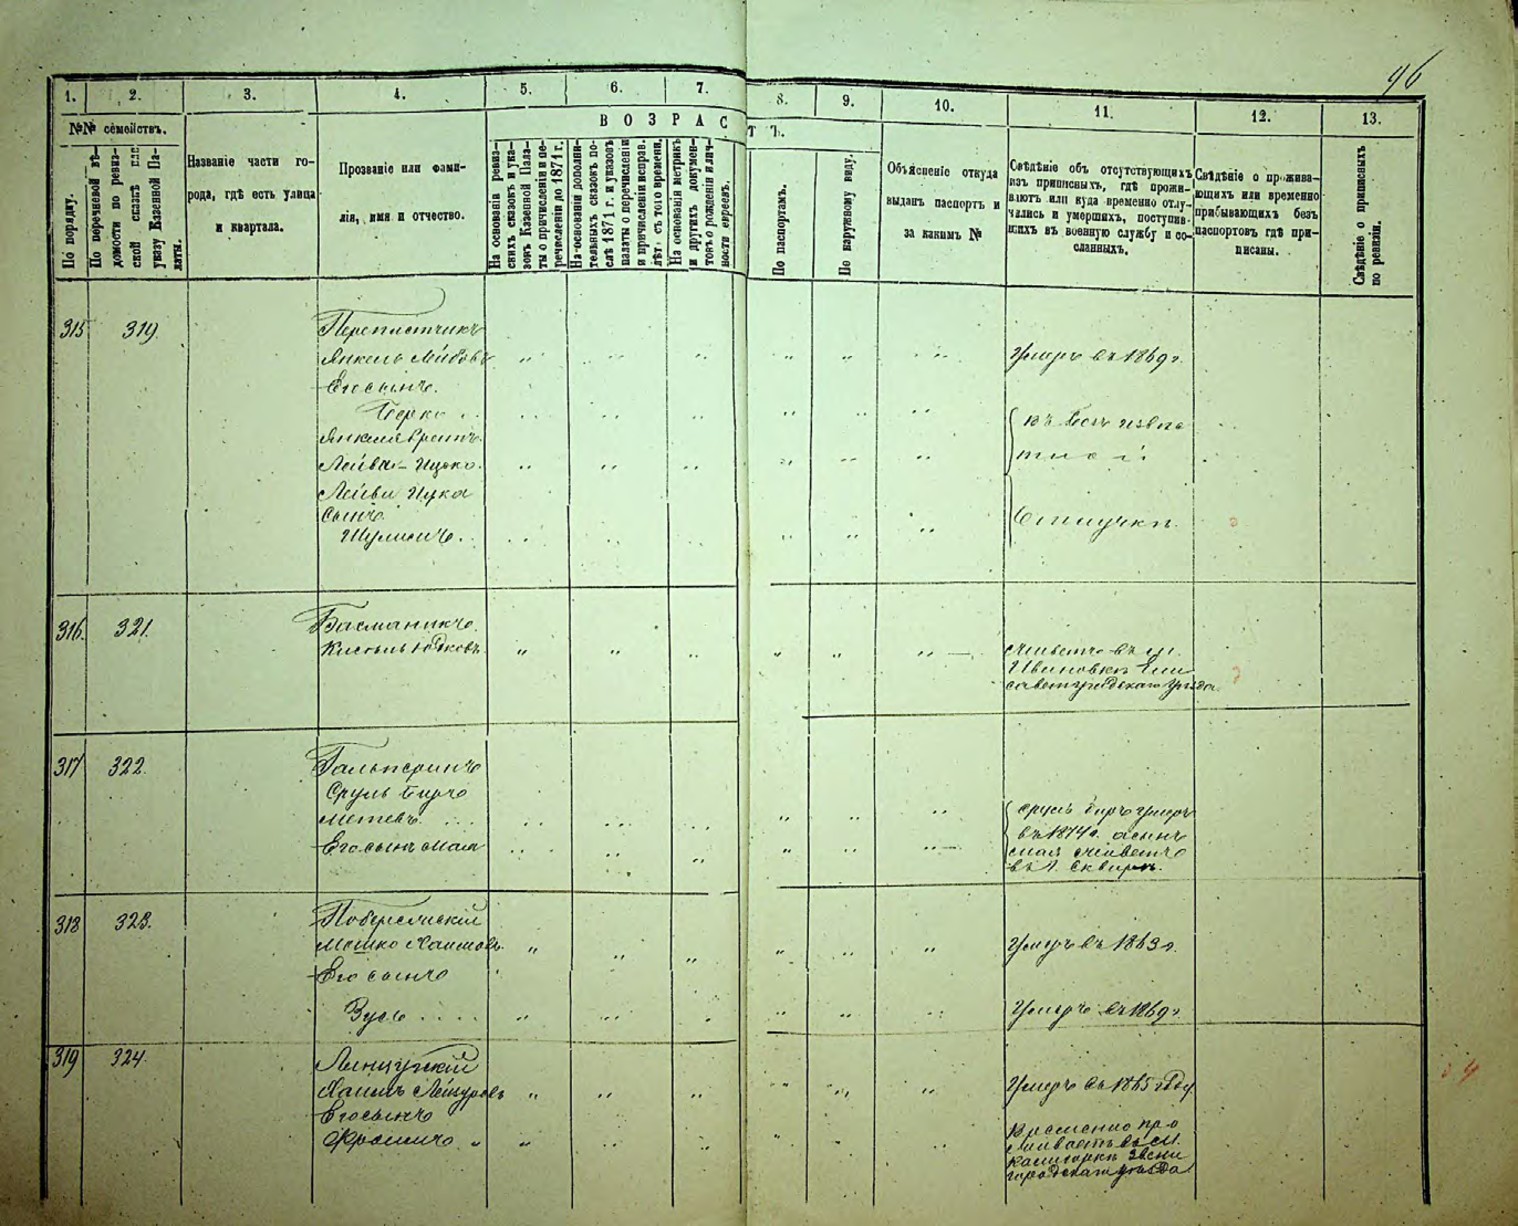 96
1. 2. 3. 4. 5. 6. 7. 8. 9. 10. 11. 12. 13.
№№ семействъ.
По порядку.
По перечневой вѣ-
домости по ревиз-
ской сказкѣ или
указу Казенной Па-
латы.
Названіе части го-
рода, гдѣ есть улица
и квартала.
Прозваніе или фами-
лія, имя и отчество.
ВОЗРАСТЪ.
На основаніи ревиз-
скихъ сказокъ и ука-
зовъ Казенной Пала-
ты о причисленіи и пе-
речисленіи до 1871 г.
На основаніи дополни-
тельныхъ сказокъ по-
слѣ 1871 г. и указовъ
палаты о перечисленіи
и причисленіи исправ.
лѣт. съ того времени.
На основаніи метрикъ
и другихъ докумен-
товъ о рожденіи и лич-
ности евреевъ.
По паспортамъ.
По наружному виду.
Объясненіе откуда
выданъ паспортъ и
за какимъ №
Свѣдѣніе объ отсутствующихъ
изъ приписныхъ, гдѣ прожи-
ваютъ или куда временно отлу-
чились и умершихъ, поступив-
шихъ въ военную службу и со-
сланныхъ.
Свѣдѣніе о прожива-
ющихъ или временно
прибывающихъ безъ
паспортовъ гдѣ при-
писаны.
Свѣдѣніе о приписныхъ
по ревизіи.
315 319.
Переплетчикъ
Янкель Лейбовъ
Умеръ въ 1869 г.
Его сынъ.
Берко
въ безъ извѣс
Лейба-Ицко.
тной
Лейби Ицка
сынъ
Шулимъ.
отлучкѣ
316. 321.
Басманикъ.
Кисель Юдковъ
живетъ въ м.
Ивановкѣ Ели
саветградскаго уѣзда
317 322.
Гальперинъ
Сруль Биръ
Сруль Биръ умеръ
въ 1874 г. а сынъ
Его сынъ
живетъ
въ г. Сквирѣ.
318 323.
Мошко Хаимовъ
Умеръ въ 1863 г.
Его сынъ
Зусь
Умеръ въ 1869 г.
319 324.
Хаимъ
Умеръ въ 1865 году
Его сынъ
Фроимъ
Временно про
живаетъ въ м.
Звени
городскаго уѣзда